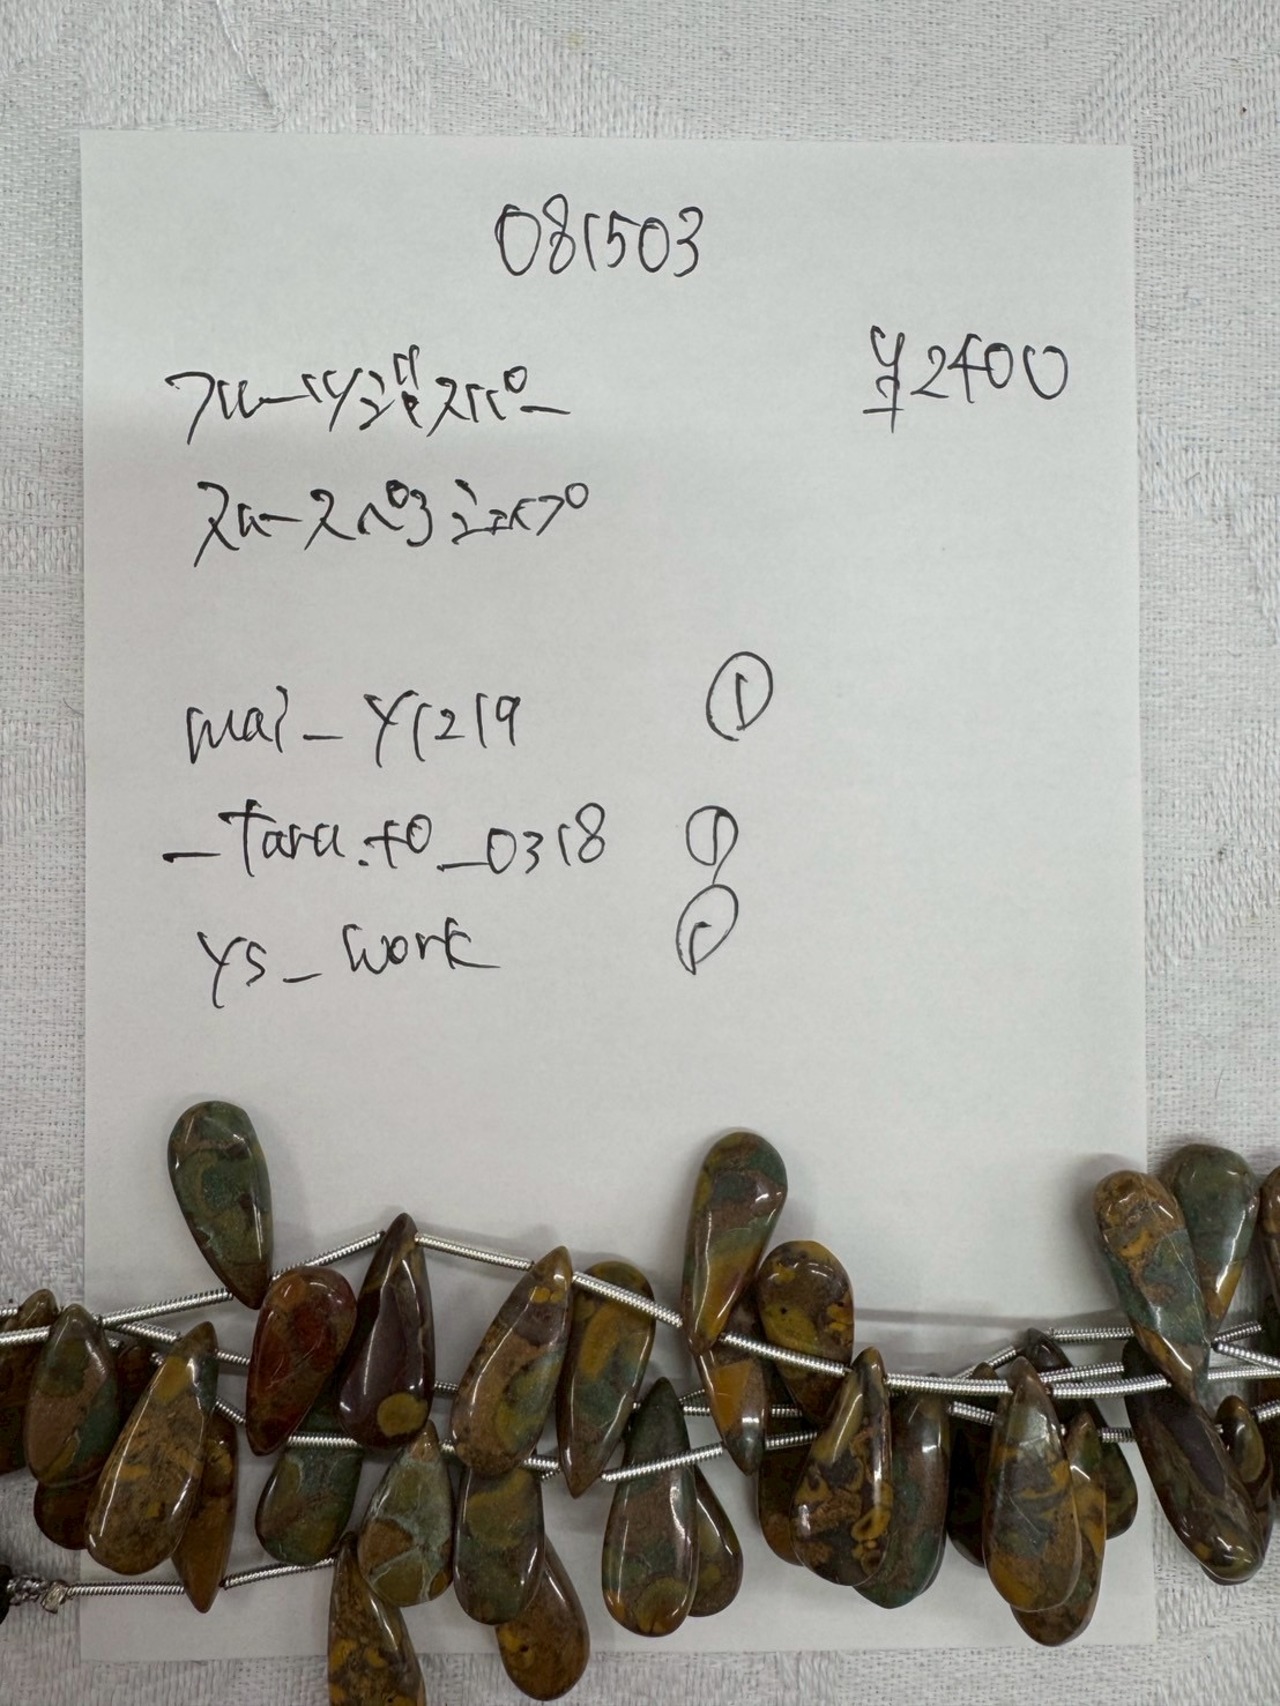 081503
フルーツジャスパー
¥2400
スムースペアシェイプ
mai_y1219 ①
_tara.to_0318 ①
ys_work ①